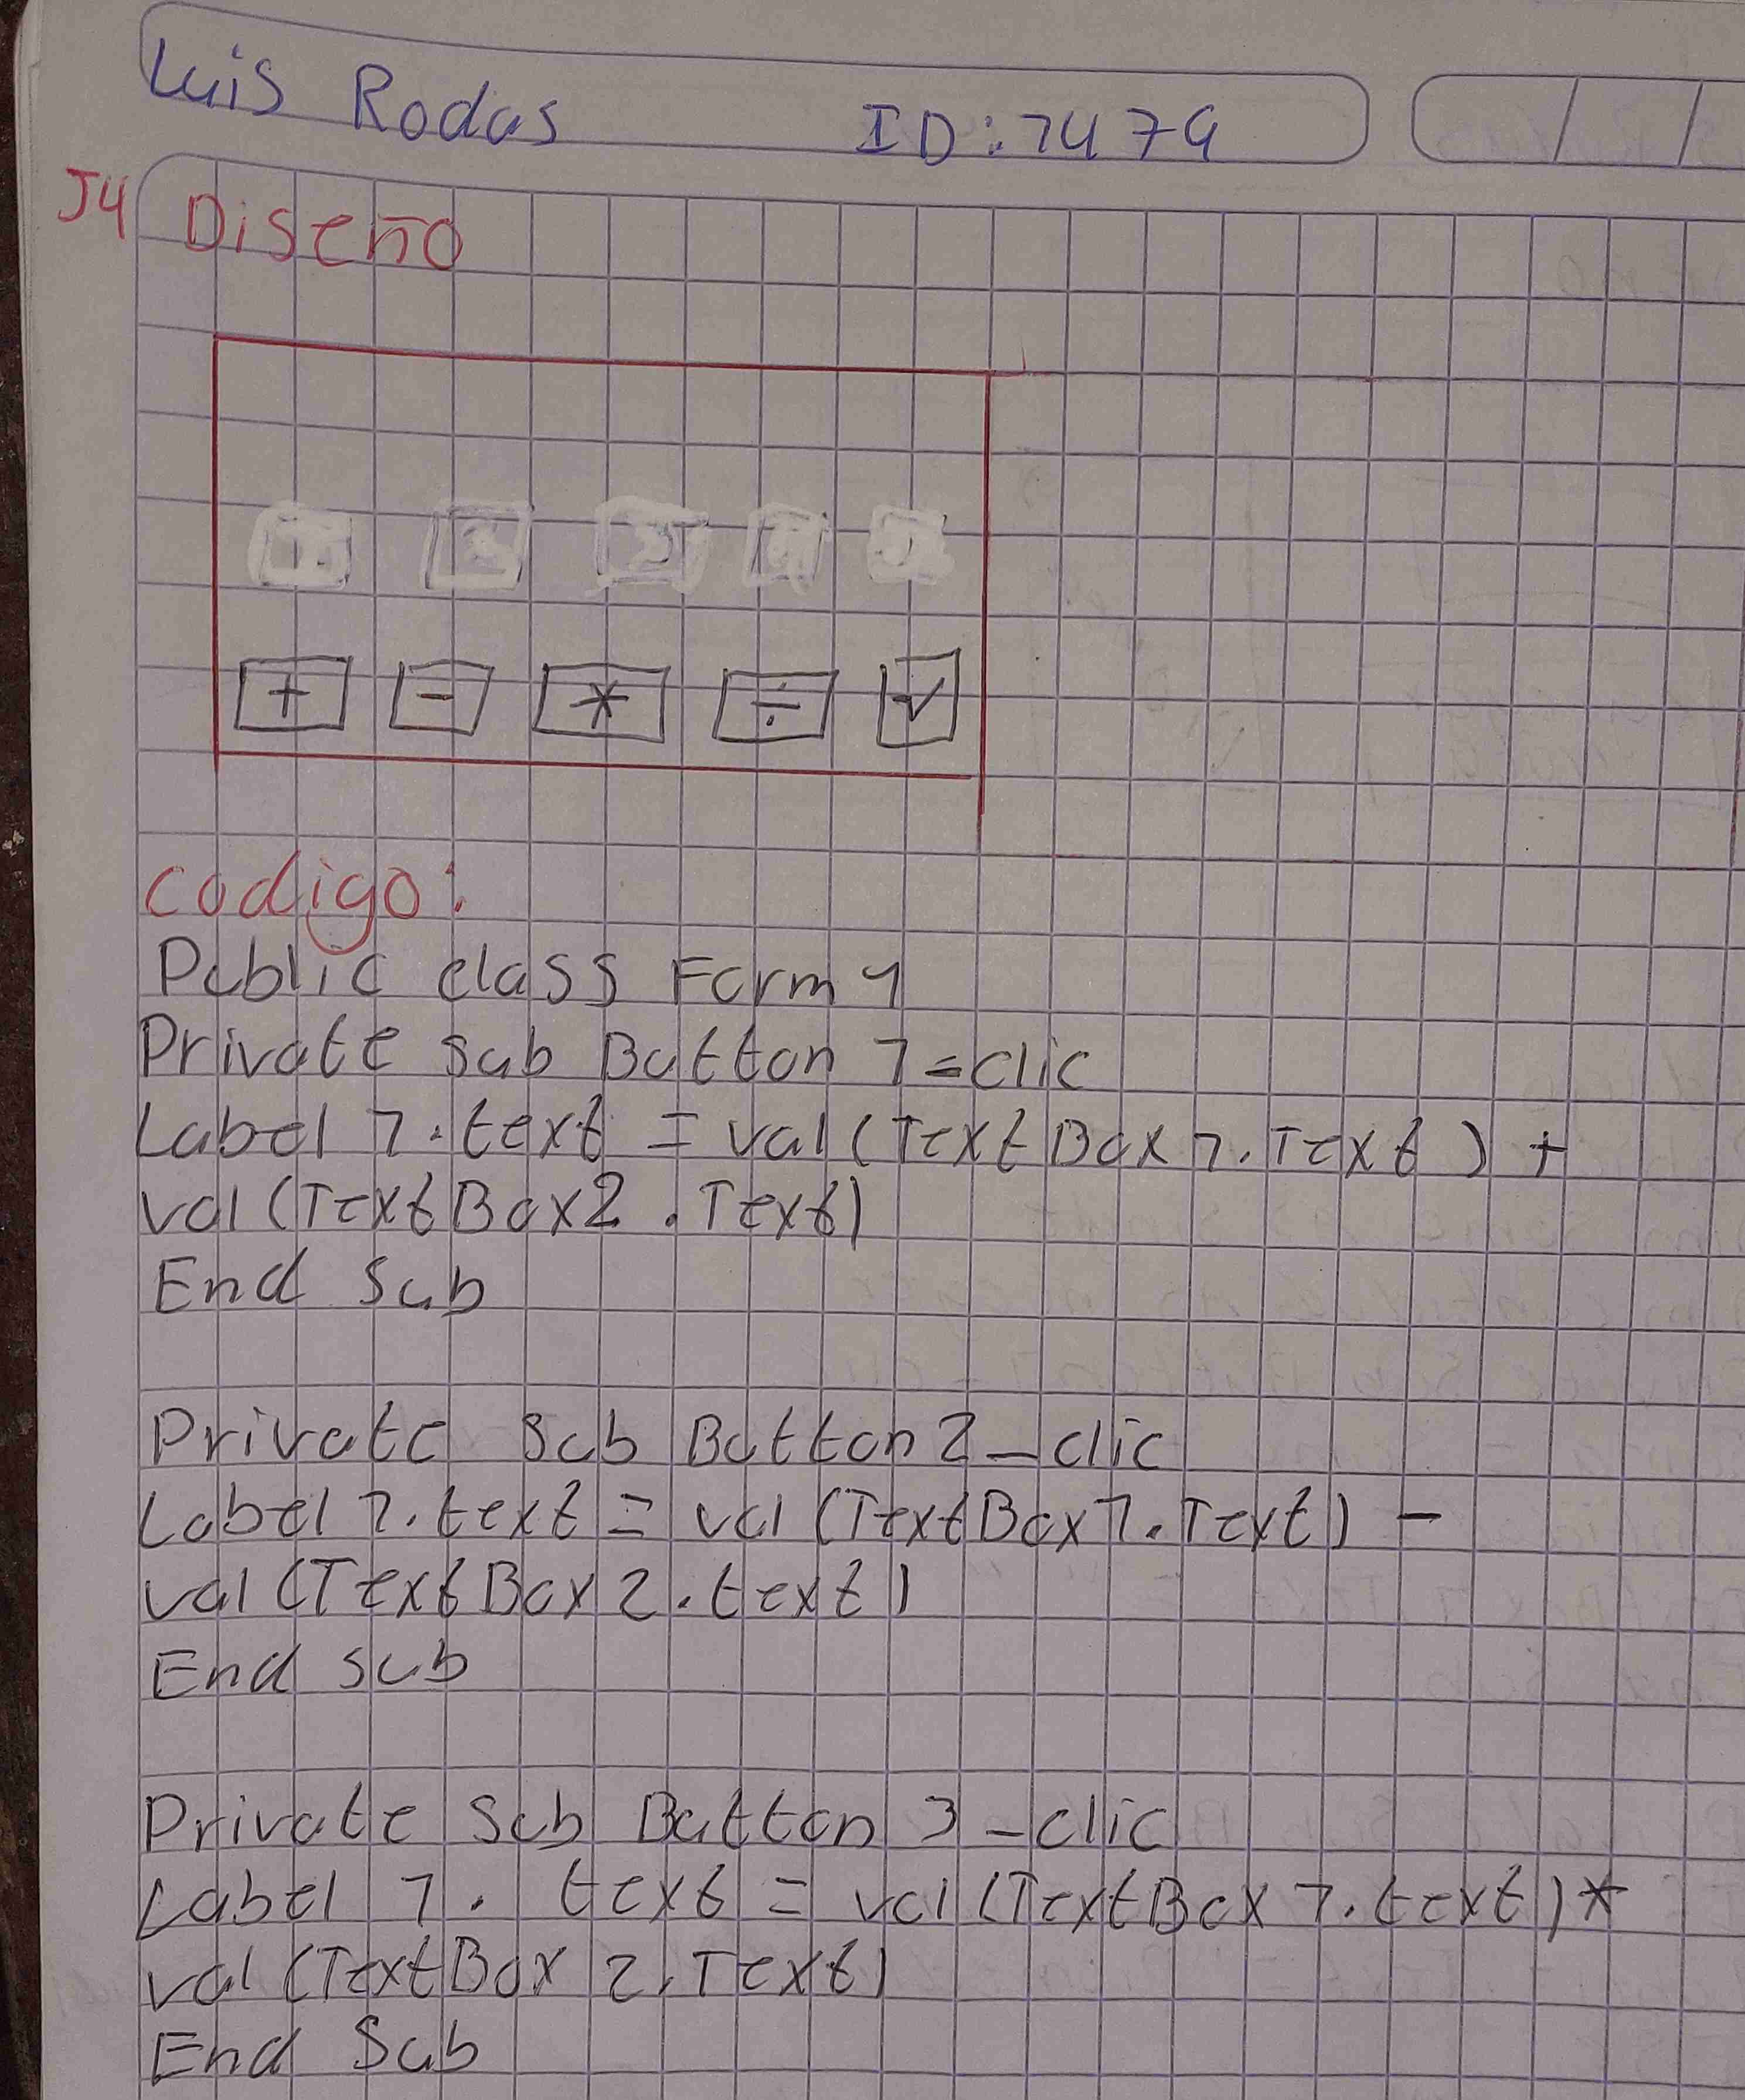 Luis Rodas ID: 1479
J4 Diseño
+ - * ÷ √
codigo:
Public class Form 1
Private sub Button 1=clic
Label 1.text = val(TextBox 1.Text) +
val(TextBox2.Text)
End Sub
Private Sub Button 2_clic
Label 1.text = val(TextBox 1.Text) -
val(TextBox 2.text)
End sub
Private Sub Button 3_clic
Label 1. text = val(TextBox 1.text)*
val(TextBox 2.Text)
End Sub